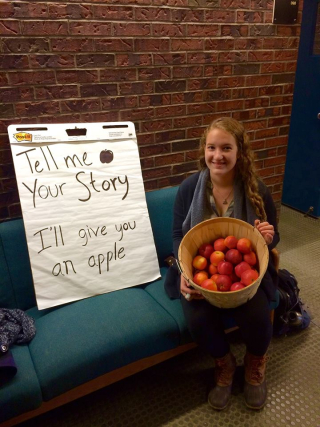 Post-it
Tell me
Your Story
I'll give you
an apple